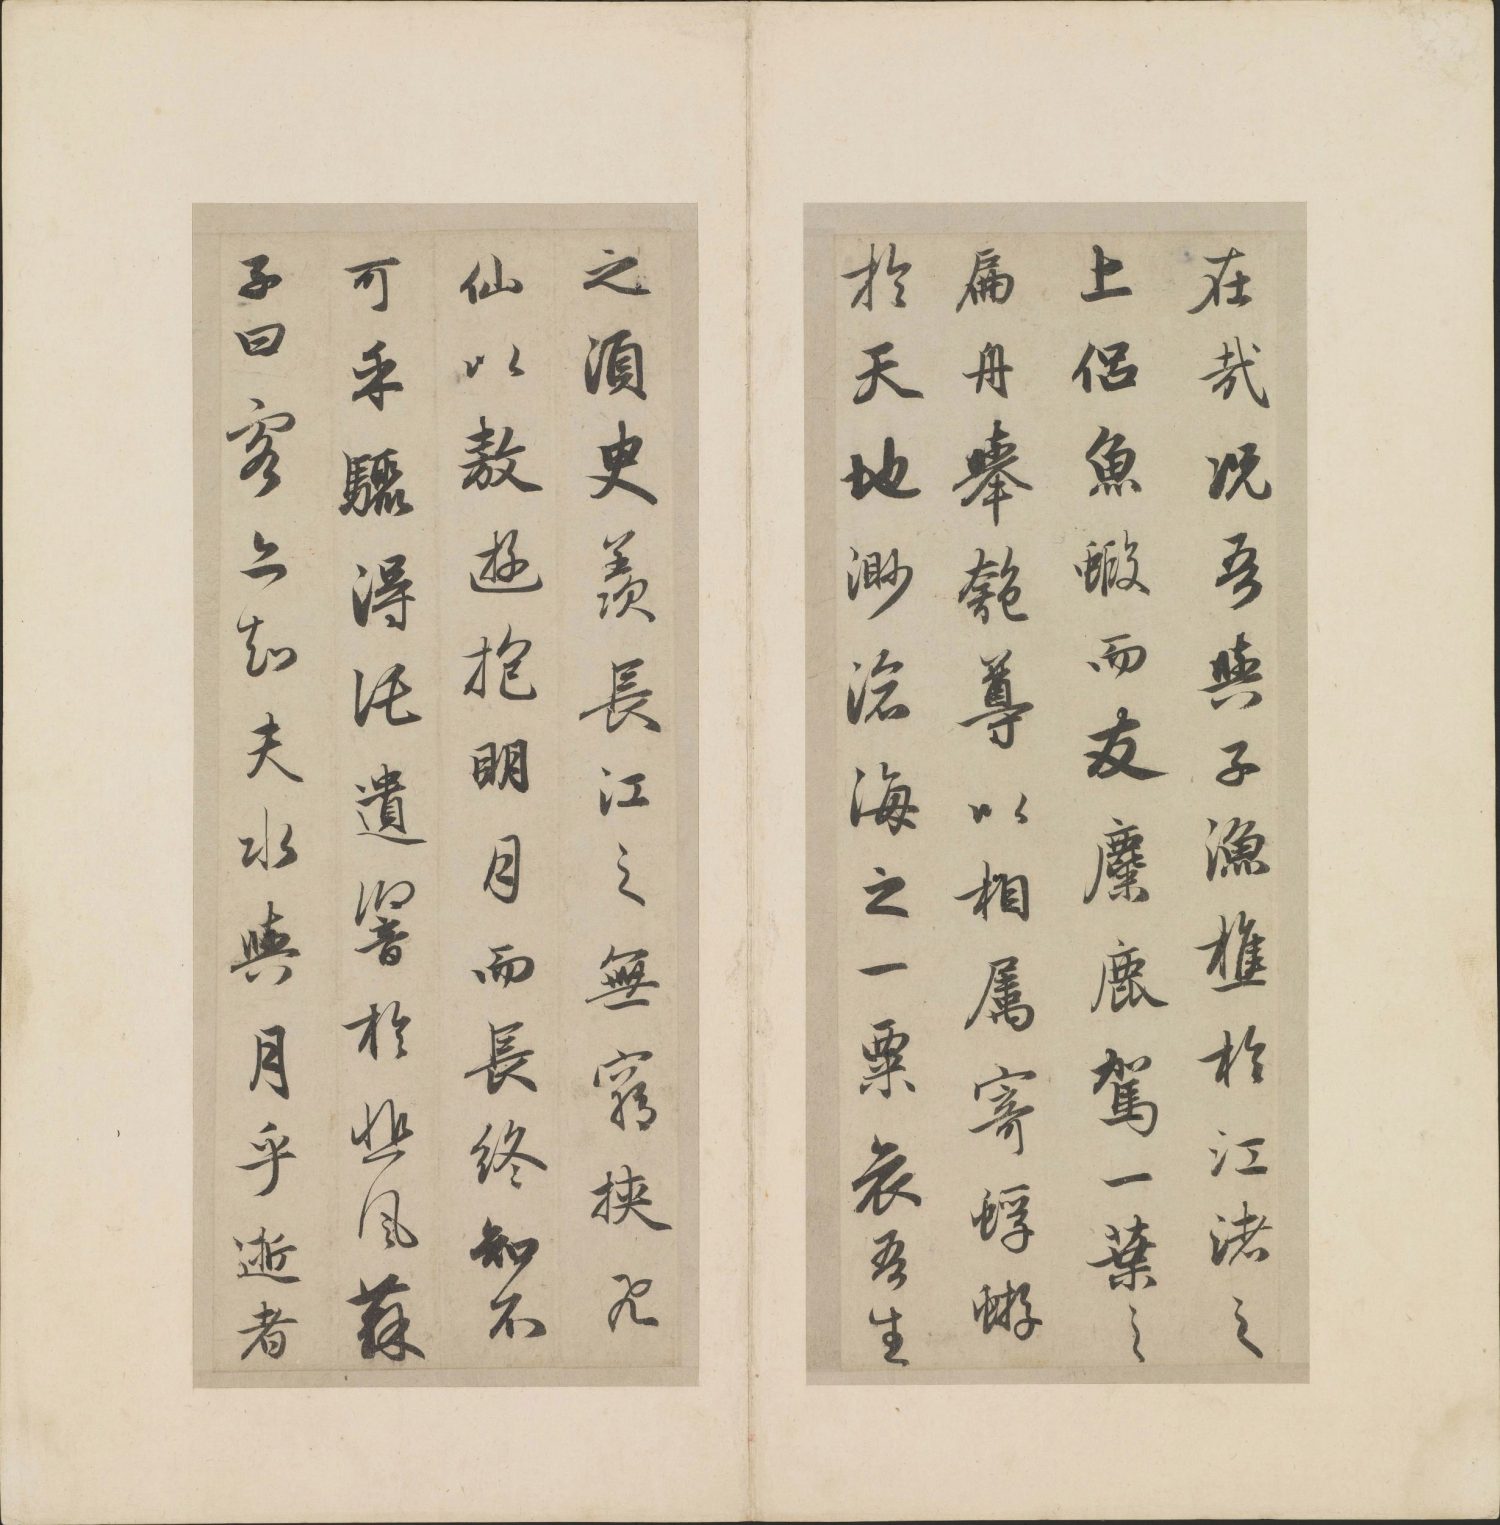 在哉况吾與子漁樵於江渚之
上侣魚蝦而友麋鹿駕一葉之
扁舟舉匏尊以相属寄蜉蝣
於天地渺滄海之一粟哀吾生
之須臾羨長江之無窮挾飛
仙以敖遊抱明月而長終知不
可乎驟得托遺響於悲風蘇
子曰客亦知夫水與月乎逝者